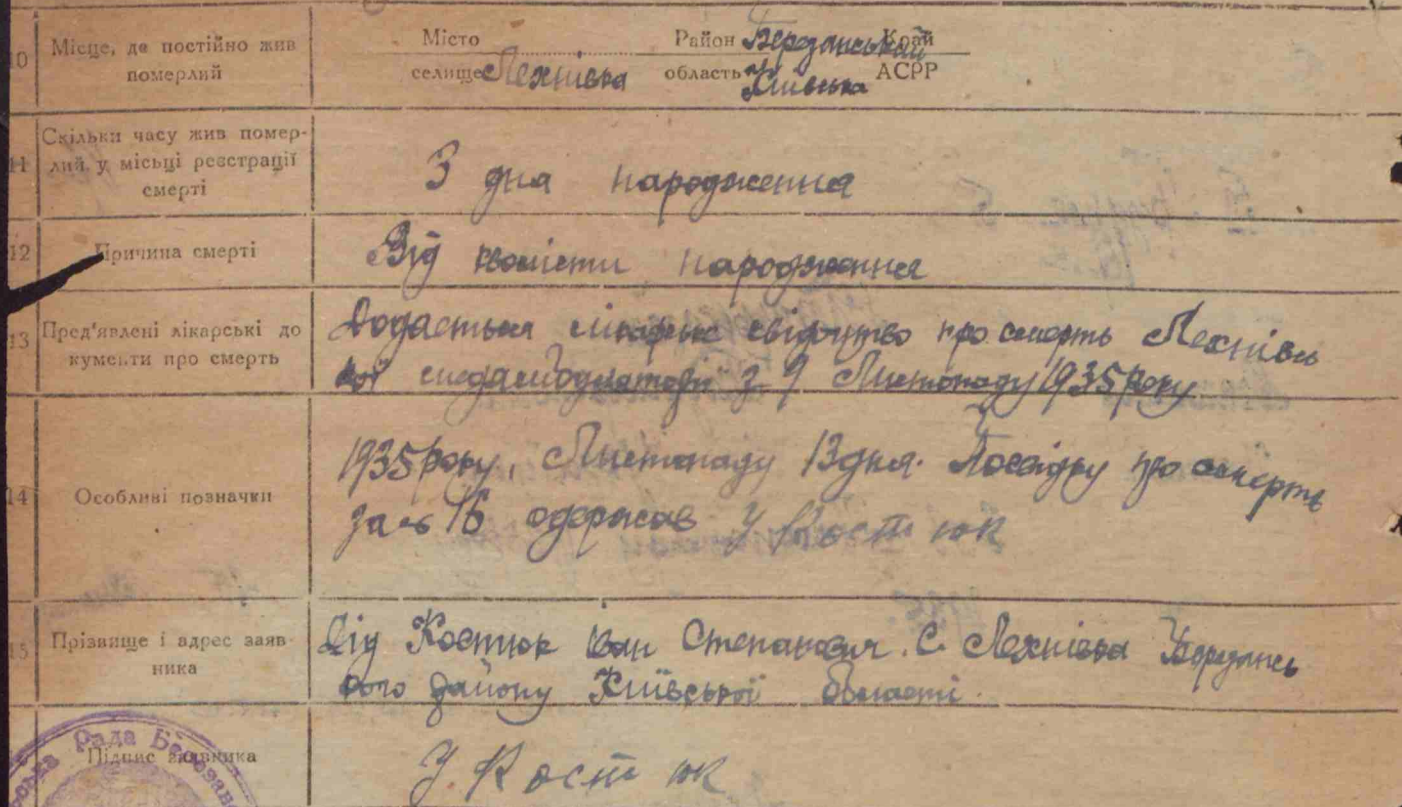 10 Місце, де постійно жив Місто Район Березанський Край
померлий селище Лехнівка область Київська АСРР
11 Скільки часу жив помер-
лий у місьці реєстрації З дна народження
смерті
12 Причина смерті Від народження
13 Пред'явлені лікарські до Додаеться свідоцтво про смерть Лехнівсь
кументи про смерть кої з 9 Листопаду 1935 року
14 Особливі позначки 1935 року, Листопаду 13 дня. Посвідку про смерть
за № 16 одержав У Костюк
15 Прізвище і адрес заяв- Дід Костюк Іван Степанович. С. Лехнівка Березансь
ника кого району Київської області.
Підпис заявника У. Костюк
Рада Березанс